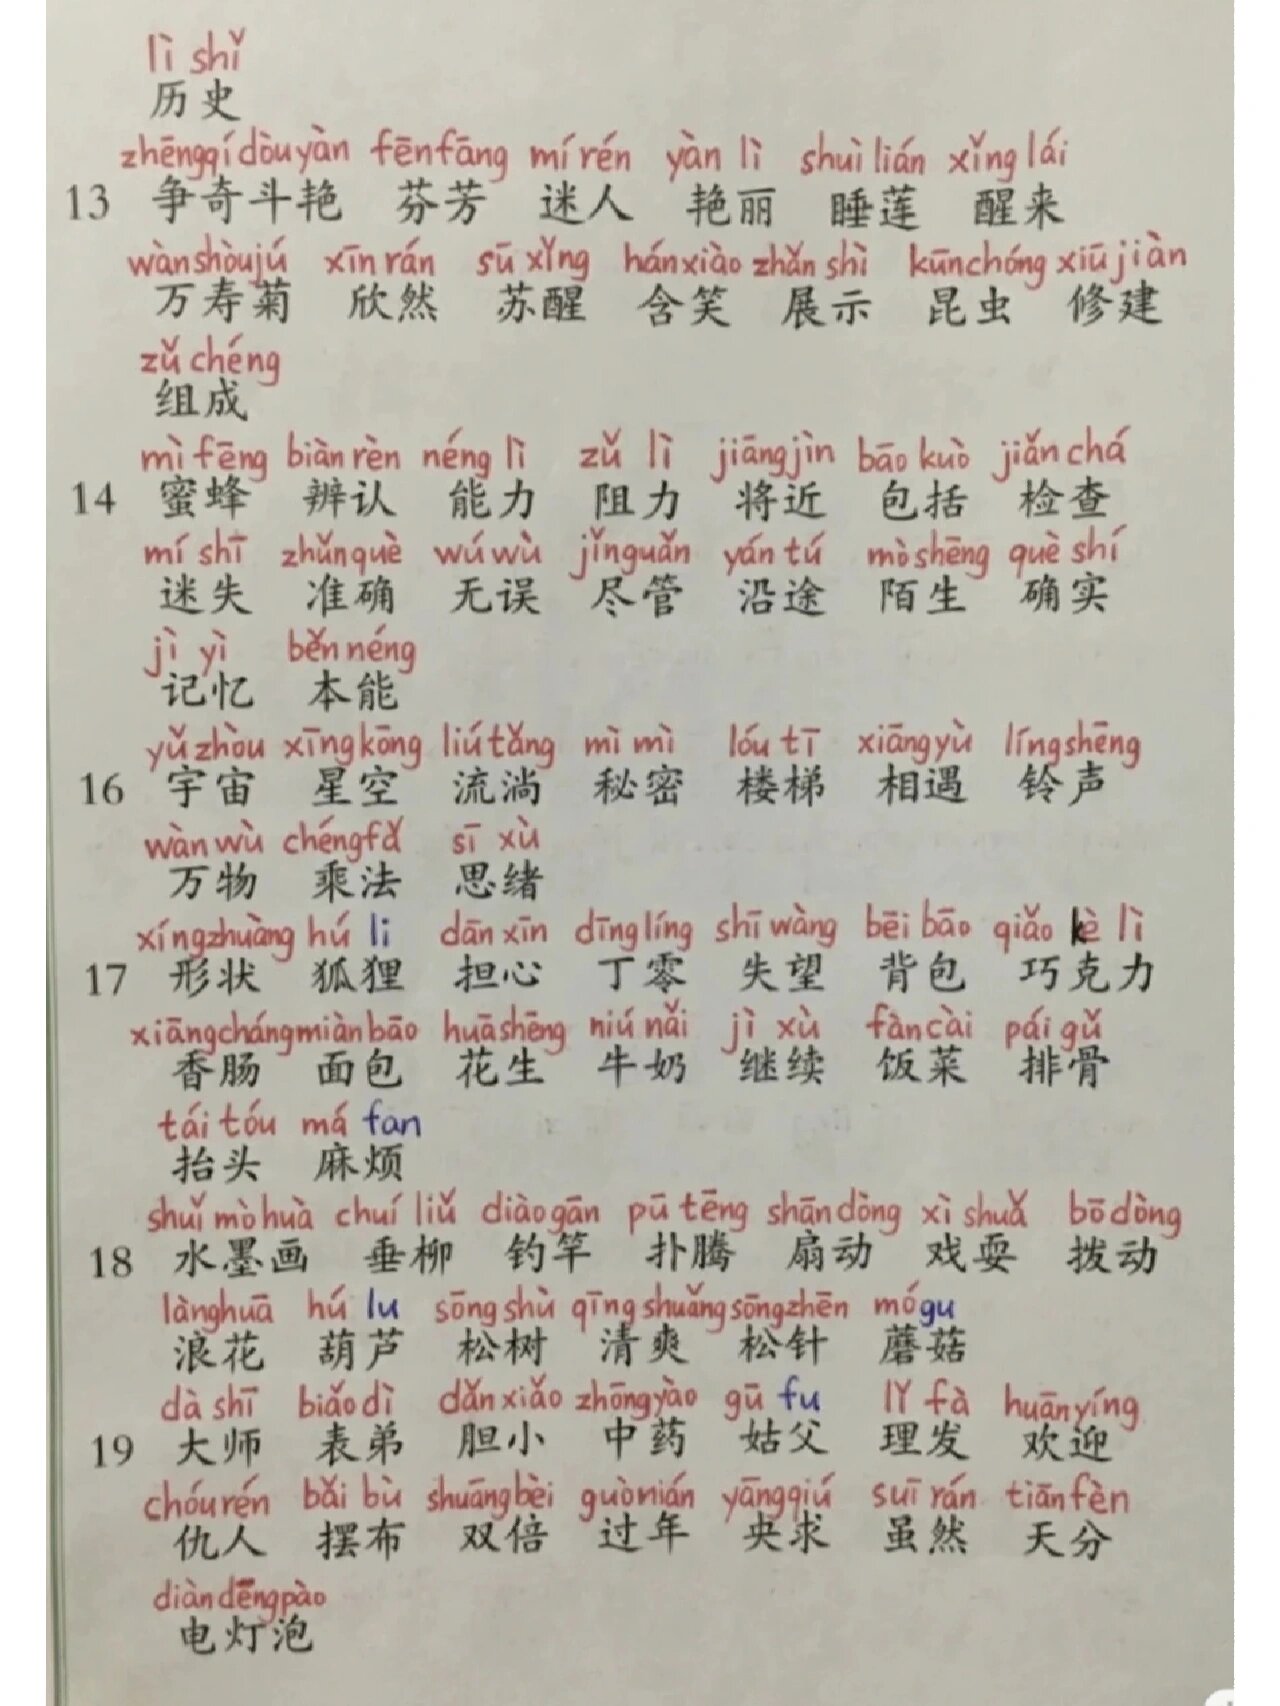 lì shǐ
历史
zhēngqídòuyàn fēnfāng mí rén yàn lì shuìlián xǐng lái
13 争奇斗艳 芬芳 迷人 艳丽 睡莲 醒来
wànshòujú xīn rán sū xǐng hánxiào zhǎn shì kūnchóng xiūjiàn
万寿菊 欣然 苏醒 含笑 展示 昆虫 修建
zǔ chéng
组成
mì fēng biàn rèn néng lì zǔ lì jiāngjìn bāo kuò jiǎn chá
14 蜜蜂 辨认 能力 阻力 将近 包括 检查
mí shī zhǔnquè wú wù jǐnguǎn yán tú mò shēng què shí
迷失 准确 无误 尽管 沿途 陌生 确实
jì yì běn néng
记忆 本能
yǔ zhòu xīngkōng liútǎng mì mì lóu tī xiāngyù língshēng
16 宇宙 星空 流淌 秘密 楼梯 相遇 铃声
wàn wù chéngfǎ sī xù
万物 乘法 思绪
xíngzhuàng hú li dān xīn dīng líng shī wàng bēi bāo qiǎo kè lì
17 形状 狐狸 担心 丁零 失望 背包 巧克力
xiāngcháng miànbāo huāshēng niú nǎi jì xù fàncài pái gǔ
香肠 面包 花生 牛奶 继续 饭菜 排骨
tái tóu má fan
抬头 麻烦
shuǐ mò huà chuí liǔ diàogān pū tēng shāndòng xì shuǎ bō dòng
18 水墨画 垂柳 钓竿 扑腾 扇动 戏耍 拨动
lànghuā hú lu sōng shù qīng shuǎng sōngzhēn mógu
浪花 葫芦 松树 清爽 松针 蘑菇
dà shī biǎo dì dǎn xiǎo zhōngyào gū fu lǐ fà huānyíng
19 大师 表弟 胆小 中药 姑父 理发 欢迎
chóurén bǎi bù shuāngbèi guònián yāngqiú suī rán tiānfèn
仇人 摆布 双倍 过年 央求 虽然 天分
diàndēngpào
电灯泡